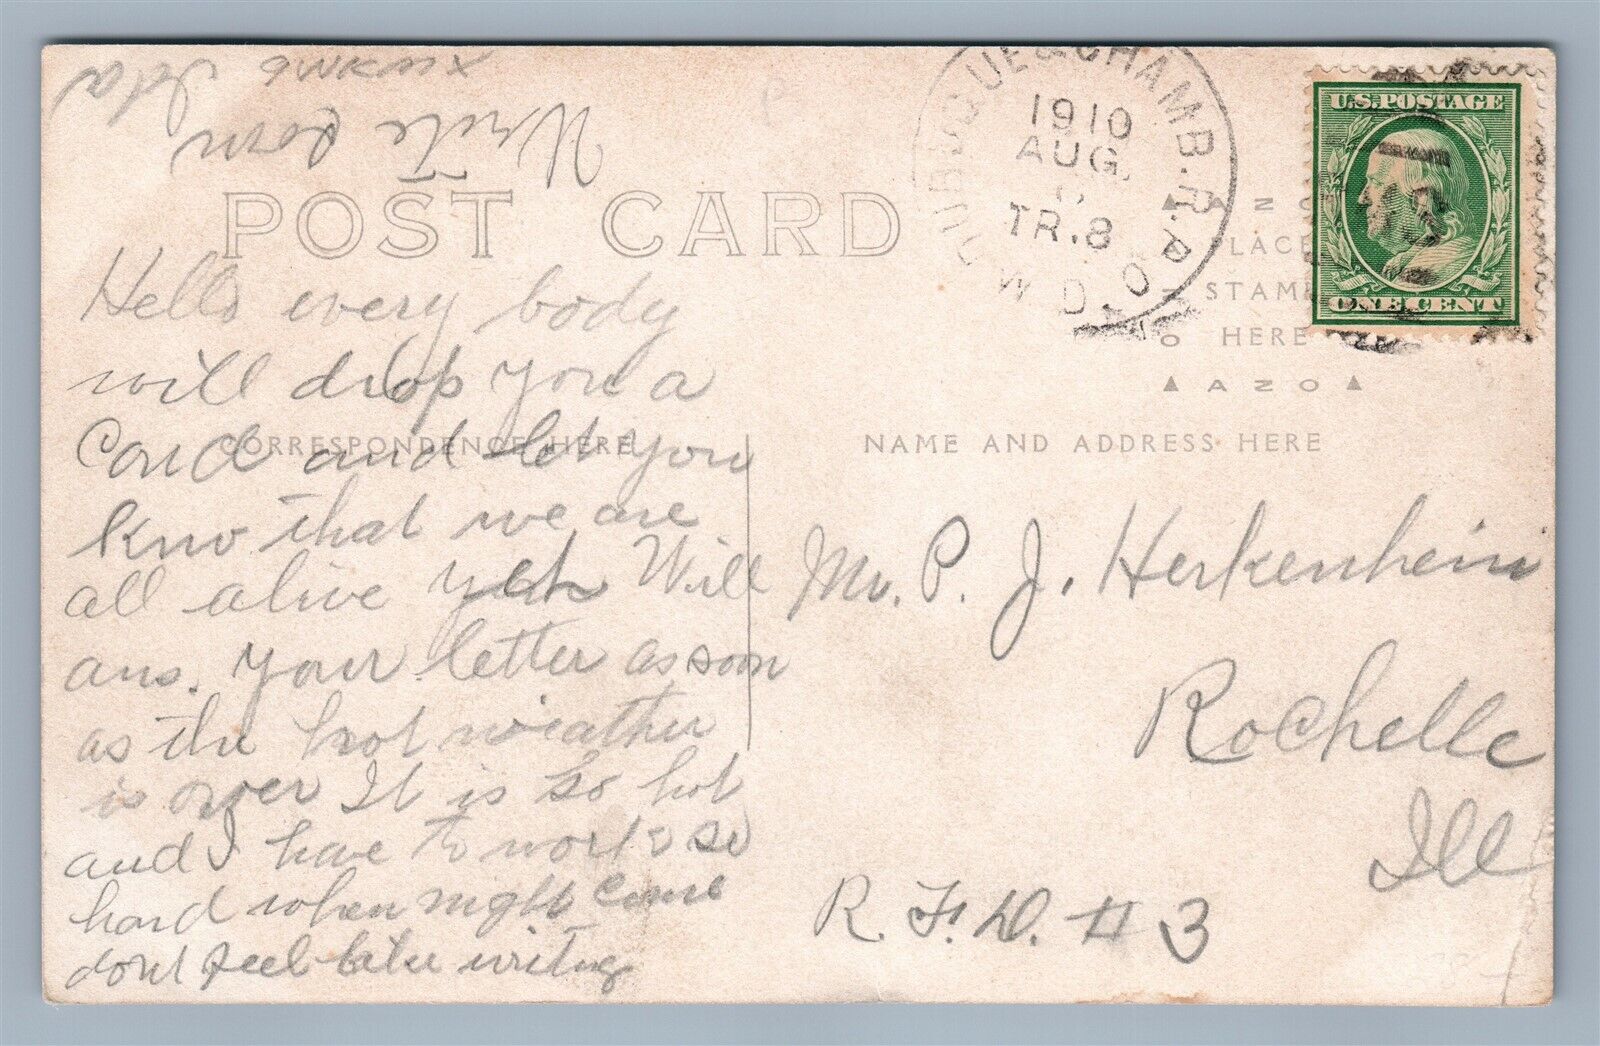 Write soon
Ida
POST CARD
Hello every body
will drop you a
Card and let you
CORRESPONDENCE HERE
know that we are
all alive yet Will
ans. your letter as soon
as the hot weather
is over It is so hot
and I have to work so
hard when night come
dont feel like writing
DUBUQUE & CHAMB. R.P.O.
1910
AUG.
TR.8
W.D.
U.S. POSTAGE
ONE CENT
AZO
PLACE
STAMP
HERE
AZO
NAME AND ADDRESS HERE
Mr. P. J. Herkenheim
Rochelle
Ill
R. F. D. # 3